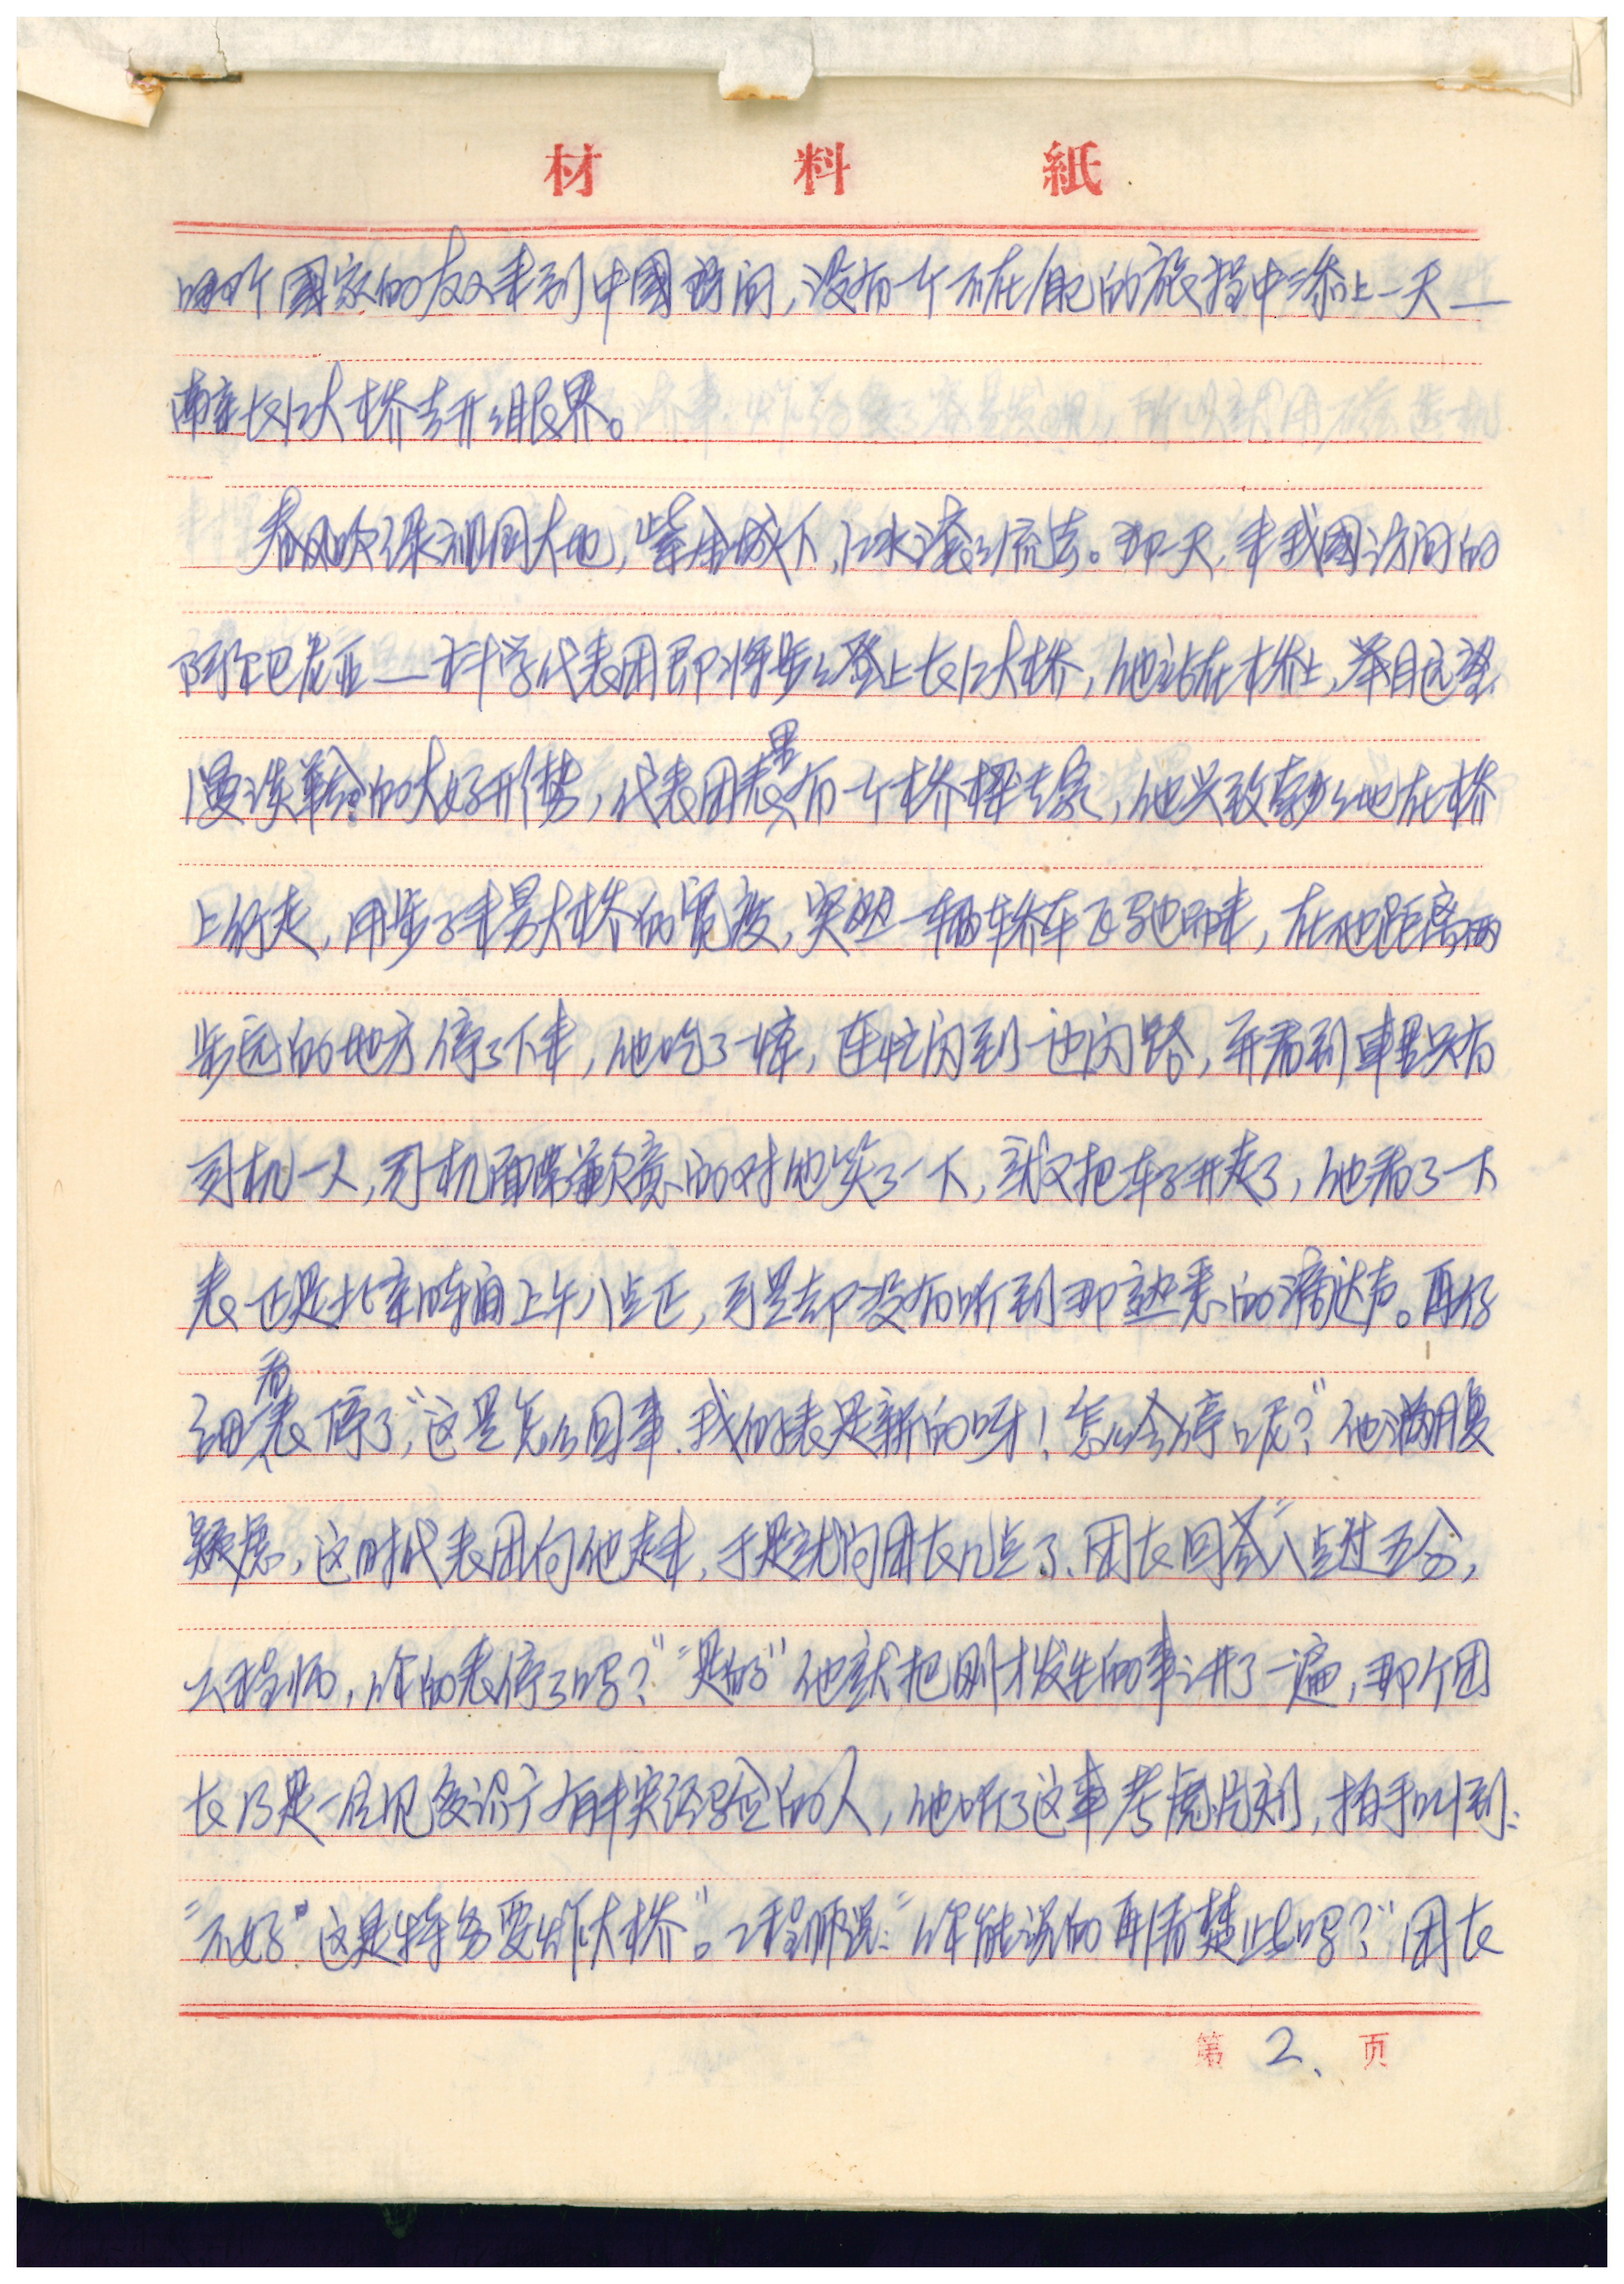 材料紙
哪个國家的友人来到中國訪问,没有一个不在自己的旅程中添上一天—
南京长江大桥去开细眼界。
春风吹绿祖国大地,紫金城下,江水滚滚流去。那天,来我國访问的
阿尔巴尼亚—科学代表团即将步步登上长江大桥,他站在桥上,举目远望
漫谈革命的大好形势,代表团里有一个桥樑专家,他兴致勃勃地在桥
上行走,用步子来量大桥的宽度,突然一辆轿车飞驰而来,在他距离两
步远的地方停了下来,他吃了一惊,连忙闪到一边闪路,并看到車里只有
司机一人,司机面帶歉意的对他笑了一下,就又把车子开走了,他看了一下
表正是北京時间上午八点正,可是却没有听到那熟悉的滴达声。再仔
细看表停了,“这是怎么回事.我的表是新的呀!怎么会停呢?”他满腹
疑慮,这时代表团向他走来,于是就问团长几点了、团长回答“八点过五分,
工程师,你的表停了吗?”“是的”他就把刚才发生的事讲了一遍,那个团
长乃是一位见多识广有丰实经验的人,他听了这事考慮片刻,拍手叫到:
“不好”这是特务要炸大桥”。工程师说:“你能说的再清楚些吗?”团长
第 2、 页